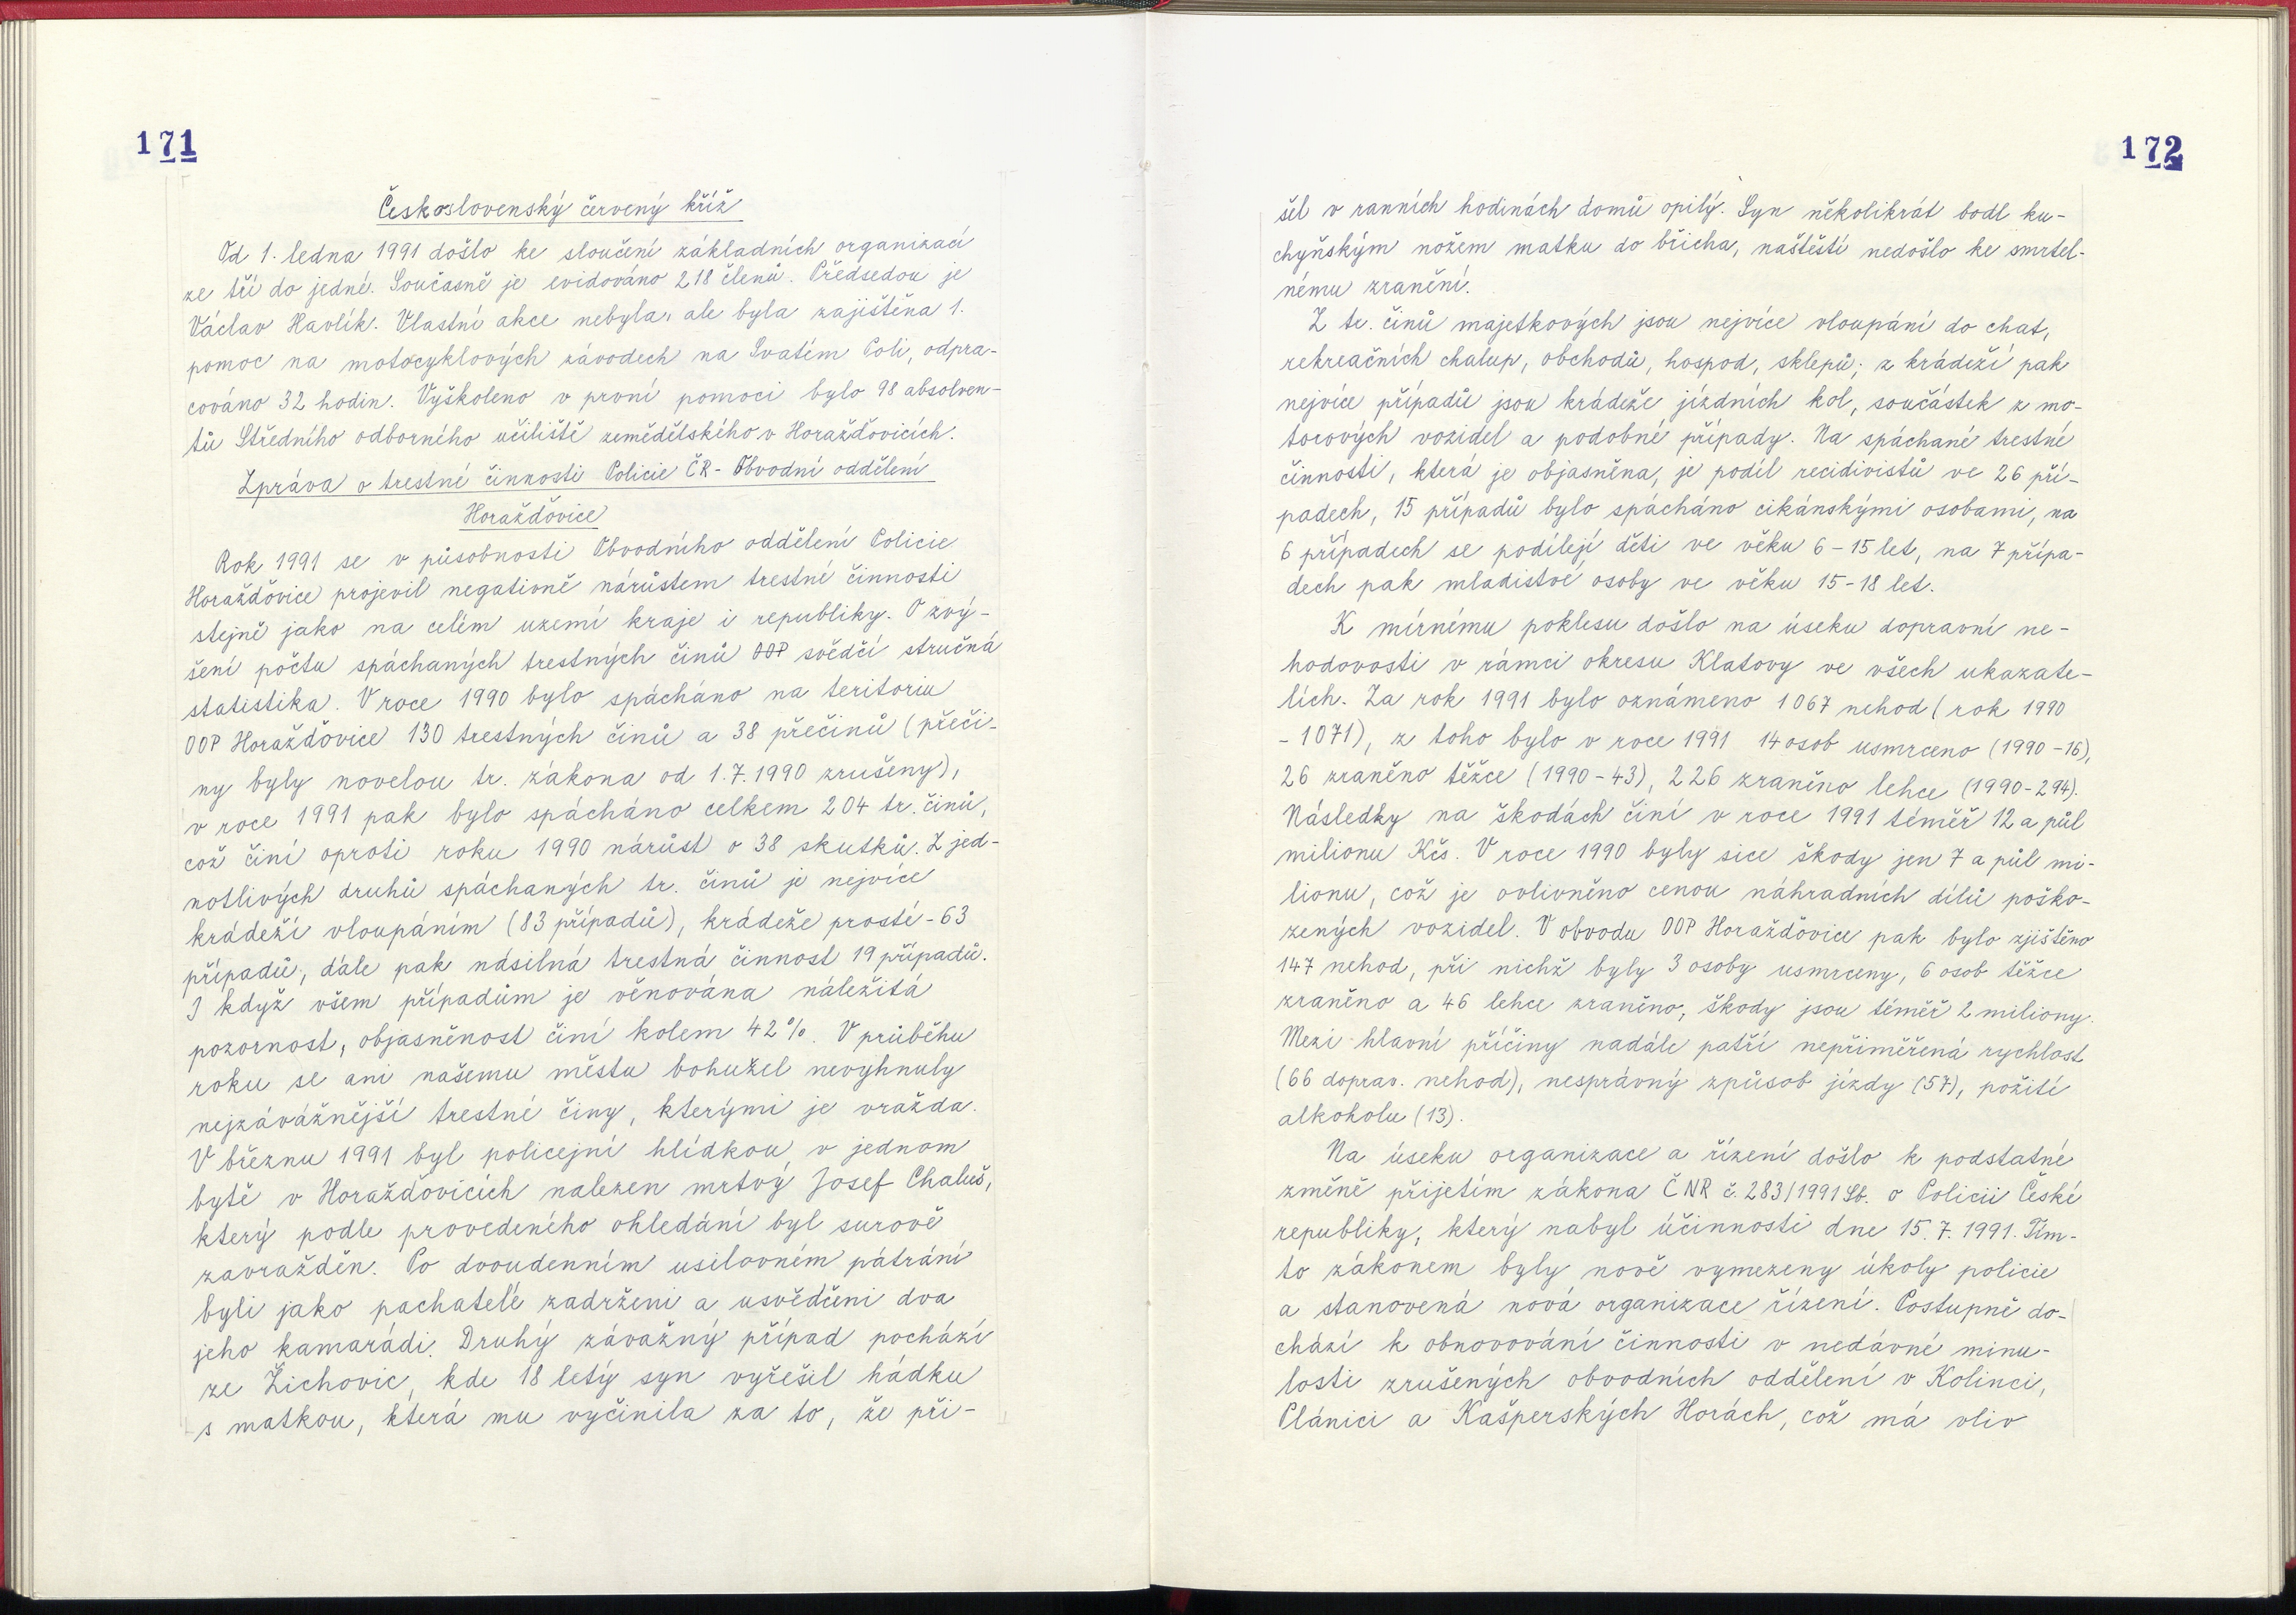 171
Československý červený kříž
Od 1. ledna 1991 došlo ke sloučení základních organizací
ze tří do jedné. Současně je evidováno 218 členů. Předsedou je
Václav Havlík. Vlastní akce nebyla, ale byla zajištěna 1.
pomoc na motocyklových závodech na Svatém Poli, odpra-
cováno 32 hodin. Vyškoleno v první pomoci bylo 98 absolven-
tů Středního odborného učiliště zemědělského v Horažďovicích.
Zpráva o trestné činnosti Policie ČR - Obvodní oddělení
Horažďovice
Rok 1991 se v působnosti Obvodního oddělení Policie
Horažďovice projevil negativně nárůstem trestné činnosti
stejně jako na celém uzemí kraje i republiky. O zvý-
šení počtu spáchaných trestných činů OOP svědčí stručná
statistika. V roce 1990 bylo spácháno na teritoriu
OOP Horažďovice 130 trestných činů a 38 přečinů (přeči-
ny byly novelou tr. zákona od 1.7.1990 zrušeny),
v roce 1991 pak bylo spácháno celkem 204 tr. činů,
což činí oproti roku 1990 nárůst o 38 skutků. Z jed-
notlivých druhů spáchaných tr. činů je nejvíce
krádeží vloupáním (83 případů), krádeže prosté - 63
případů, dále pak násilná trestná činnost 19 případů.
I když všem případům je věnována náležitá
pozornost, objasněnost činí kolem 42%. V průběhu
roku se ani našemu městu bohužel nevyhnuly
nejzávážnější trestné činy, kterými je vražda.
V březnu 1991 byl policejní hlídkou v jednom
bytě v Horažďovicích nalezen mrtvý Josef Chaluš,
který podle provedeného ohledání byl surově
zavražděn. Po dvoudenním usilovném pátrání
byli jako pachatelé zadrženi a usvědčeni dva
jeho kamarádi. Druhý závažný případ pochází
ze Žichovic, kde 18 letý syn vyřešil hádku
s matkou, která mu vyčinila za to, že při-
172
šel v ranních hodinách domů opilý. Syn několikrát bodl ku-
chyňským nožem matku do břicha, naštěstí nedošlo ke smrtel-
nému zranění.
Z tr. činů majetkových jsou nejvíce vloupání do chat,
rekreačních chalup, obchodů, hospod, sklepů; z krádeží pak
nejvíce případů jsou krádeže jízdních kol, součástek z mo-
torových vozidel a podobné případy. Na spáchané trestné
činnosti, která je objasněna, je podíl recidivistů ve 26 pří-
padech, 15 případů bylo spácháno cikánskými osobami, na
6 případech se podílejí děti ve věku 6 - 15 let, na 7 přípa-
dech pak mladistvé osoby ve věku 15 - 18 let.
K mírnému poklesu došlo na úseku dopravní ne-
hodovosti v rámci okresu Klatovy ve všech ukazate-
lích. Za rok 1991 bylo oznámeno 1067 nehod (rok 1990
- 1071), z toho bylo v roce 1991 14 osob usmrceno (1990 - 16),
26 zraněno těžce (1990 - 43), 226 zraněno lehce (1990 - 294).
Následky na škodách činí v roce 1991 téměř 12 a půl
milionu Kčs. V roce 1990 byly sice škody jen 7 a půl mi-
lionu, což je ovlivněno cenou náhradních dílů poško-
zených vozidel. V obvodu OOP Horažďovice pak bylo zjištěno
147 nehod, při nichž byly 3 osoby usmrceny, 6 osob těžce
zraněno a 46 lehce zraněno, škody jsou téměř 2 miliony.
Mezi hlavní příčiny nadále patří nepřiměřená rychlost
(66 doprav. nehod), nesprávný způsob jízdy (57), požití
alkoholu (13).
Na úseku organizace a řízení došlo k podstatné
změně přijetím zákona ČNR č. 283/1991 Sb. o Policii České
republiky, který nabyl účinnosti dne 15.7.1991. Tím-
to zákonem byly nově vymezeny úkoly policie
a stanovená nová organizace řízení. Postupně do-
chází k obnovování činnosti v nedávné minu-
losti zrušených obvodních oddělení v Kolinci,
Plánici a Kašperských Horách, což má vliv